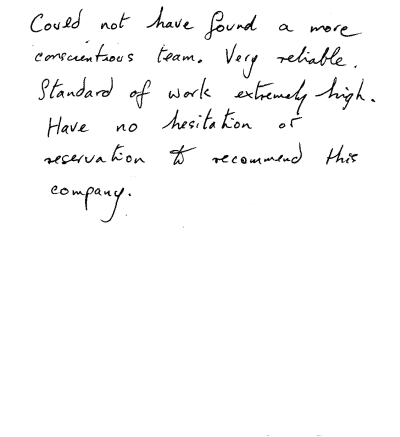 Could not have found a more
conscientious team. Very reliable.
Standard of work extremely high.
Have no hesitation or
reservation to recommend this
company.